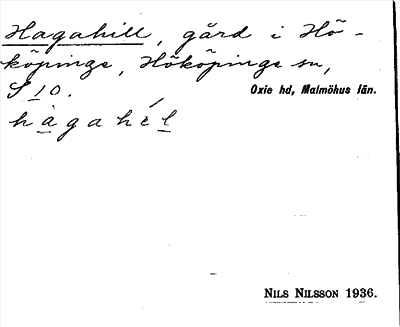 Hagahill, gård i Hö-
köpinge, Hököpinge sn,
S 10.
Oxie hd, Malmöhus län.
hàgahél
NILS NILSSON 1936.